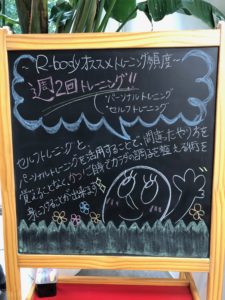 ～R-bodyオススメトレーニング頻度～
週2回トレーニング!!
・パーソナルトレーニング
・セルフトレーニング
セルフトレーニングと、
パーソナルトレーニングを活用することで、間違ったやり方を
覚えることなく、ご自身でカラダの調子を整える術を
身につけることが出来ます!